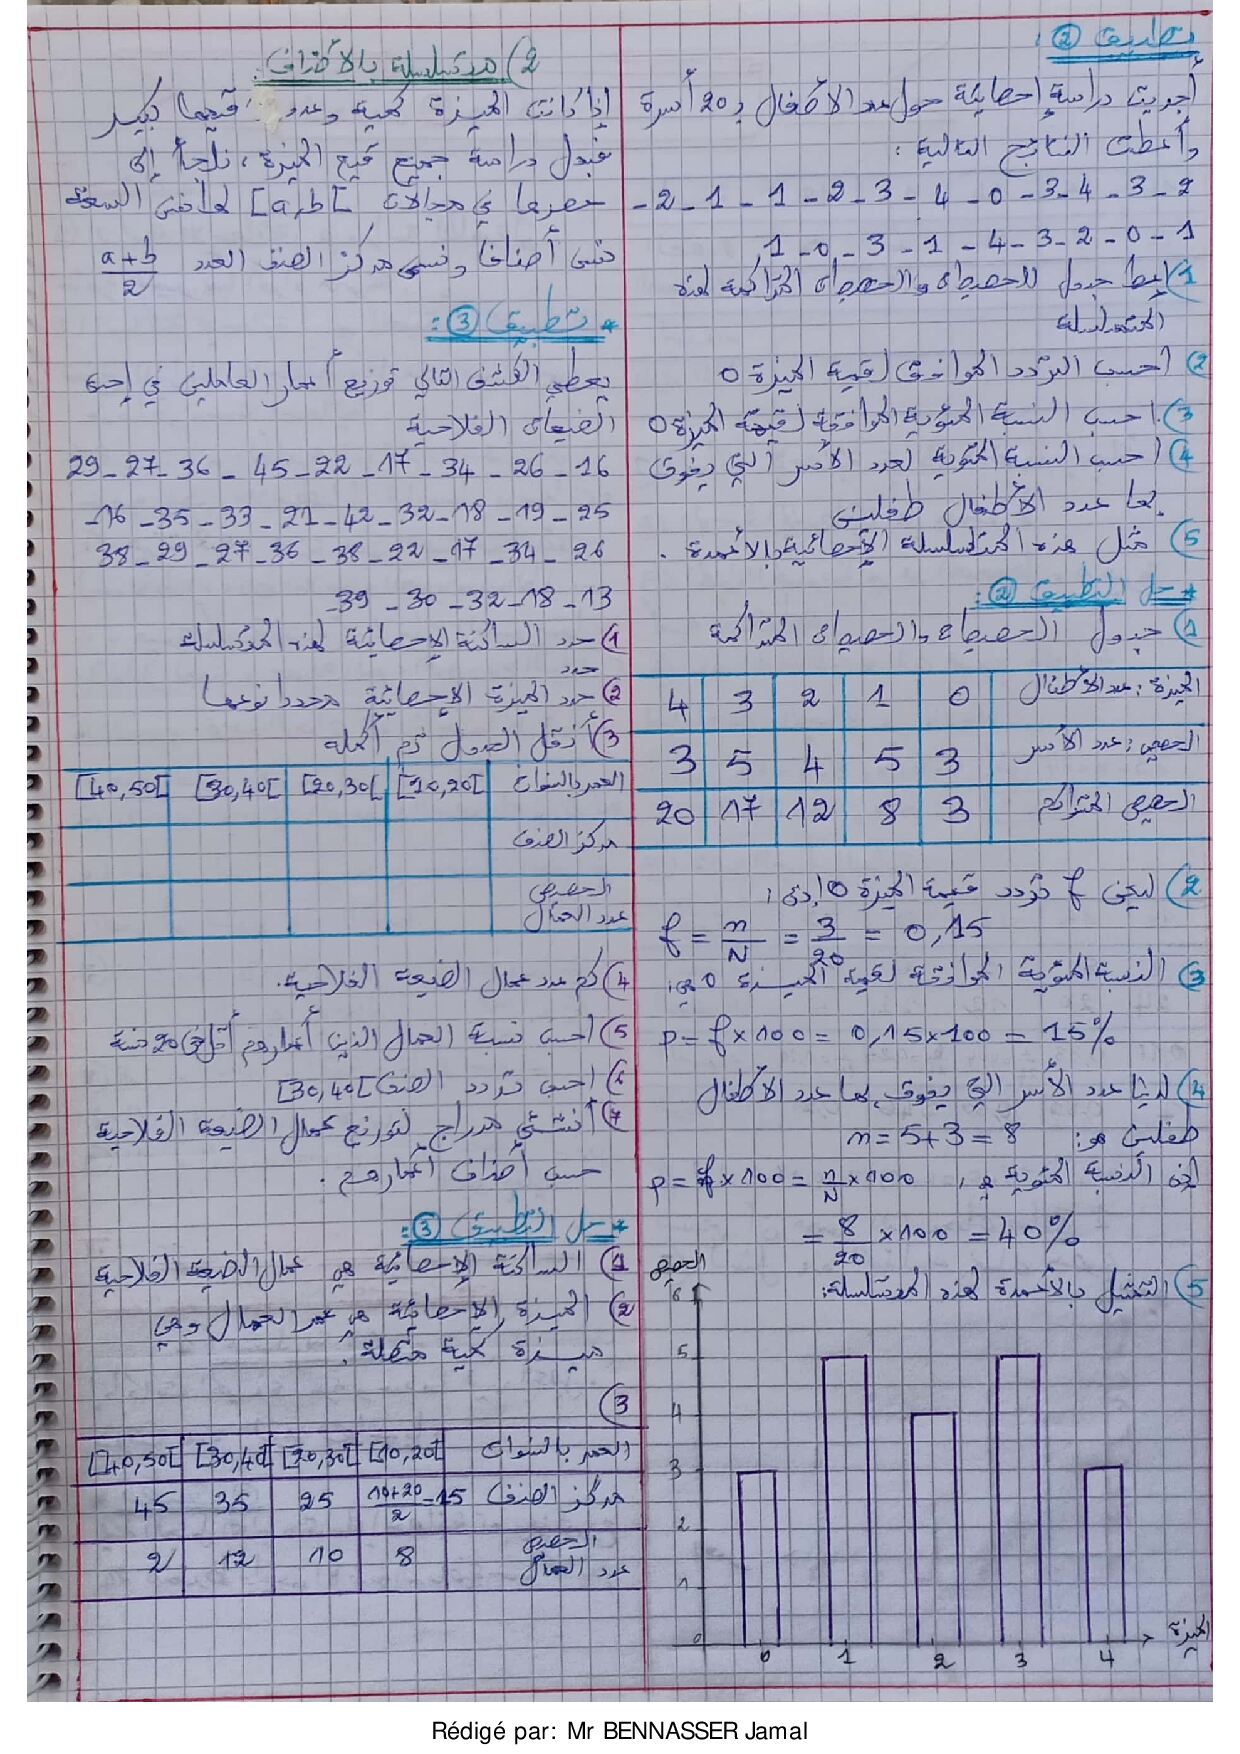 تطبيق ②:
أجريت دراسة إحصائية حول عدد الأطفال ب 20 أسرة
وأعطت النتائج التالية:
2 - 3 - 4 - 3 - 0 - 4 - 3 - 2 - 1 - 1 - 2 -
1 - 0 - 2 - 3 - 4 - 1 - 3 - 0 - 1
① إعط جدول للحصيصات والحصيصات المتراكمة لهذه
المتسلسلة
② احسب التردد الموافق لقيمة الميزة 0
③ احسب النسبة المئوية الموافقة لقيمة الميزة 0
④ احسب النسبة المئوية لعدد الأسر التي يفوق
بها عدد الأطفال طفلين
⑤ مثل هذه المتسلسلة الإحصائية بالأعمدة.
* حل التطبيق ②:
① جدول الحصيصات والحصيصات المتراكمة
الميزة: عدد الأطفال 0 1 2 3 4
الحصيص: عدد الأسر 3 5 4 5 3
الحصيص المتراكم 3 8 12 17 20
② ليكن f تردد قيمة الميزة 0 إذن:
f = n/N = 3/20 = 0,15
③ النسبة المئوية الموافقة لقيمة الميزة 0 هي:
p = f × 100 = 0,15 × 100 = 15%
④ لدينا عدد الأسر التي يفوق بها عدد الأطفال
طفلين هو: n = 5 + 3 = 8
إذن النسبة المئوية هي: p = f × 100 = n/N × 100
= 8/20 × 100 = 40%
⑤ التمثيل بالأعمدة لهذه المتسلسلة:
الحصيص
6
5
4
3
2
1
0
0 1 2 3 4
الميزة
2) متسلسلة بالأصناف:
إذا كانت الميزة كمية وعدد قيمها كبير
فبدل دراسة جميع قيم الميزة، نلجأ إلى
حصرها في مجالات [a,b[ لها نفس السعة
تسمى أصنافا ونسمي مركز الصنف العدد (a+b)/2
* تطبيق ③:
يعطي الكشف التالي توزيع أعمار العاملين في إحدى
الضيعات الفلاحية
16 - 26 - 34 - 17 - 22 - 45 - 36 - 27 - 29
25 - 19 - 18 - 32 - 42 - 21 - 33 - 35 - 16 -
26 - 34 - 17 - 22 - 38 - 36 - 27 - 29 - 38
13 - 18 - 32 - 30 - 39 -
① حدد الساكنة الإحصائية لهذه المتسلسلة
حدد
② حدد الميزة الإحصائية محددا نوعها
③ أنقل الجدول ثم أكمله
العمر بالسنوات [10,20[ [20,30[ [30,40[ [40,50[
مركز الصنف
الحصيص
عدد العمال
④ كم عدد عمال الضيعة الفلاحية.
⑤ احسب نسبة العمال الذين أعمارهم أقل من 20 سنة
⑥ احسب تردد الصنف [30,40[
⑦ أنشئ مدراج لتوزيع عمال الضيعة الفلاحية
حسب أصناف أعمارهم.
* حل التطبيق ③:
① الساكنة الإحصائية هي عمال الضيعة الفلاحية
② الميزة الإحصائية هي عمر العمال وهي
ميزة كمية متصلة.
③
العمر بالسنوات [10,20[ [20,30[ [30,40[ [40,50[
مركز الصنف (10+20)/2 = 15 25 35 45
الحصيص
عدد العمال 8 10 12 2
Rédigé par: Mr BENNASSER Jamal